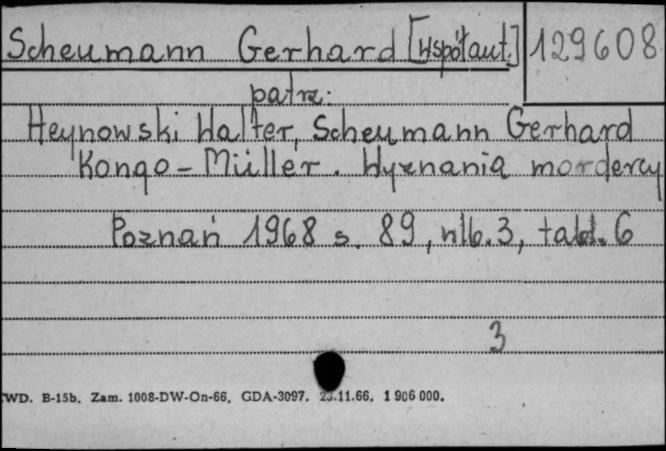 Scheumann Gerhard [Współaut.] 129608
patrz:
Heynowski Walter, Scheumann Gerhard
Kongo-Müller. Wyznania mordercy
Poznań 1968 s. 89, nlb. 3, tabl. 6
3
WD. B-15b. Zam. 1008-DW-On-66. GDA-3097. 23.11.66. 1 906 000.